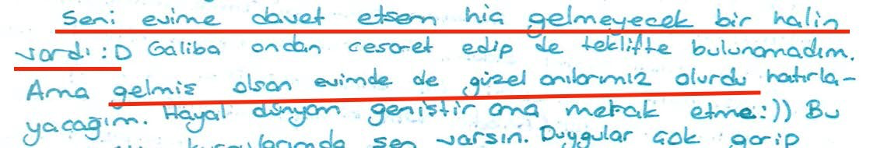 Seni evime davet etsem hiç gelmeyecek bir halin
vardı :D Galiba ondan cesaret edip de teklifte bulunamadım.
Ama gelmiş olsan evimde de güzel anılarımız olurdu hatırla-
yacağım. Hayal dünyam geniştir ama merak etme :)) Bu
kurgularımda sen varsın. Duygular çok garip